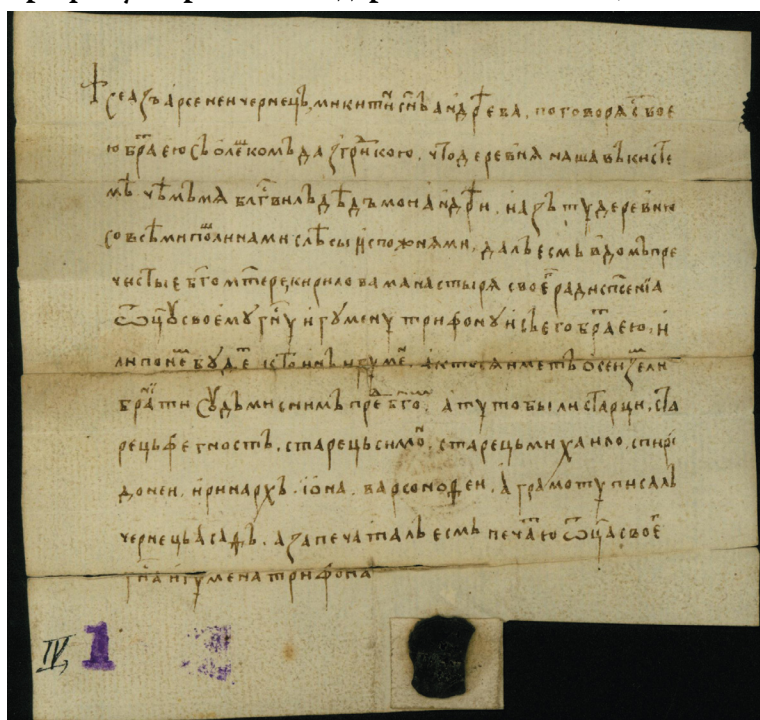 Се азъ арсенеи чернець, микитин снъ андрѣева, поговоря с бое
ю брт҃аею съ олешкомъ да з гринкою, что деревня наша въ кисте
мѣ чѣмъ мя блг҃вилъ дѣдъ мои андрѣи, и азъ ту деревню
со всѣми пошлинами с лѣсы и с пожнями, далъ есмь в домъ пре
чистые бг҃омт҃ере, кирилова манастыря своег ради спс҃енїа
ѿцу своему гн҃у игумену трифону и з его брт҃аею, и
ли по нем буде кто инъ игумен. а кто ся иметь о сеи земли
брати судъ ми с ним прѣд бг҃ом. а туто были старци, ста
рець фегностъ, старець симон, старець михаило, спири
донеи, иринархъ, їона, варсонофеи. а грамоту писалъ
чернець асафъ, а запечаталъ есмь печатю ѿца своег
гн҃а игумена трифона
IV, 1